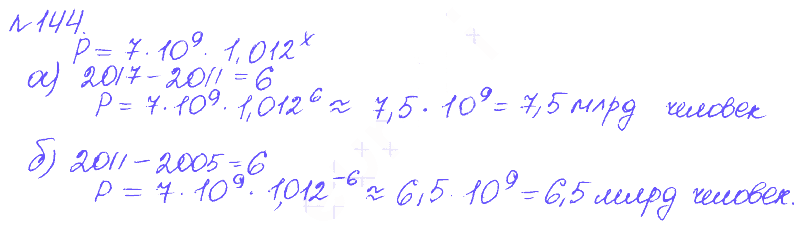 №144.
P = 7·10⁹·1,012ˣ
а) 2017 - 2011 = 6
P = 7·10⁹·1,012⁶ ≈ 7,5·10⁹ = 7,5 млрд человек
б) 2011 - 2005 = 6
P = 7·10⁹·1,012⁻⁶ ≈ 6,5·10⁹ = 6,5 млрд человек.